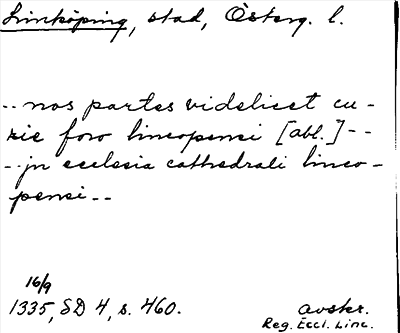 Linköping, stad, Österg. l.
.. nos partes videlicet cu-
rie foro lincopensi [abl.] --
-- jn ecclesia cathedrali linco-
pensi --
16/9
1335, SD 4, s. 460.
avskr.
Reg. Eccl. Linc.